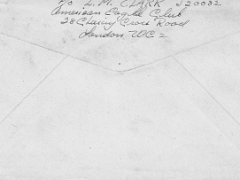 c/o L.M. CLARK J20032
American Eagle Club
28 Charing Cross Road
London WC2